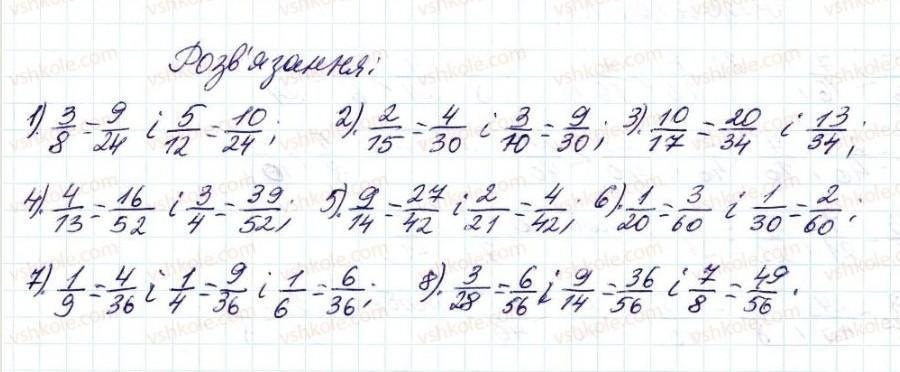 Розв'язання:
1). 3/8 = 9/24 і 5/12 = 10/24; 2). 2/15 = 4/30 і 3/10 = 9/30; 3). 10/17 = 20/34 і 13/34;
4). 4/13 = 16/52 і 3/4 = 39/52; 5). 9/14 = 27/42 і 2/21 = 4/42; 6). 1/20 = 3/60 і 1/30 = 2/60;
7). 1/9 = 4/36 і 1/4 = 9/36 і 1/6 = 6/36; 8). 3/28 = 6/56 і 9/14 = 36/56 і 7/8 = 49/56.
vshkole.com